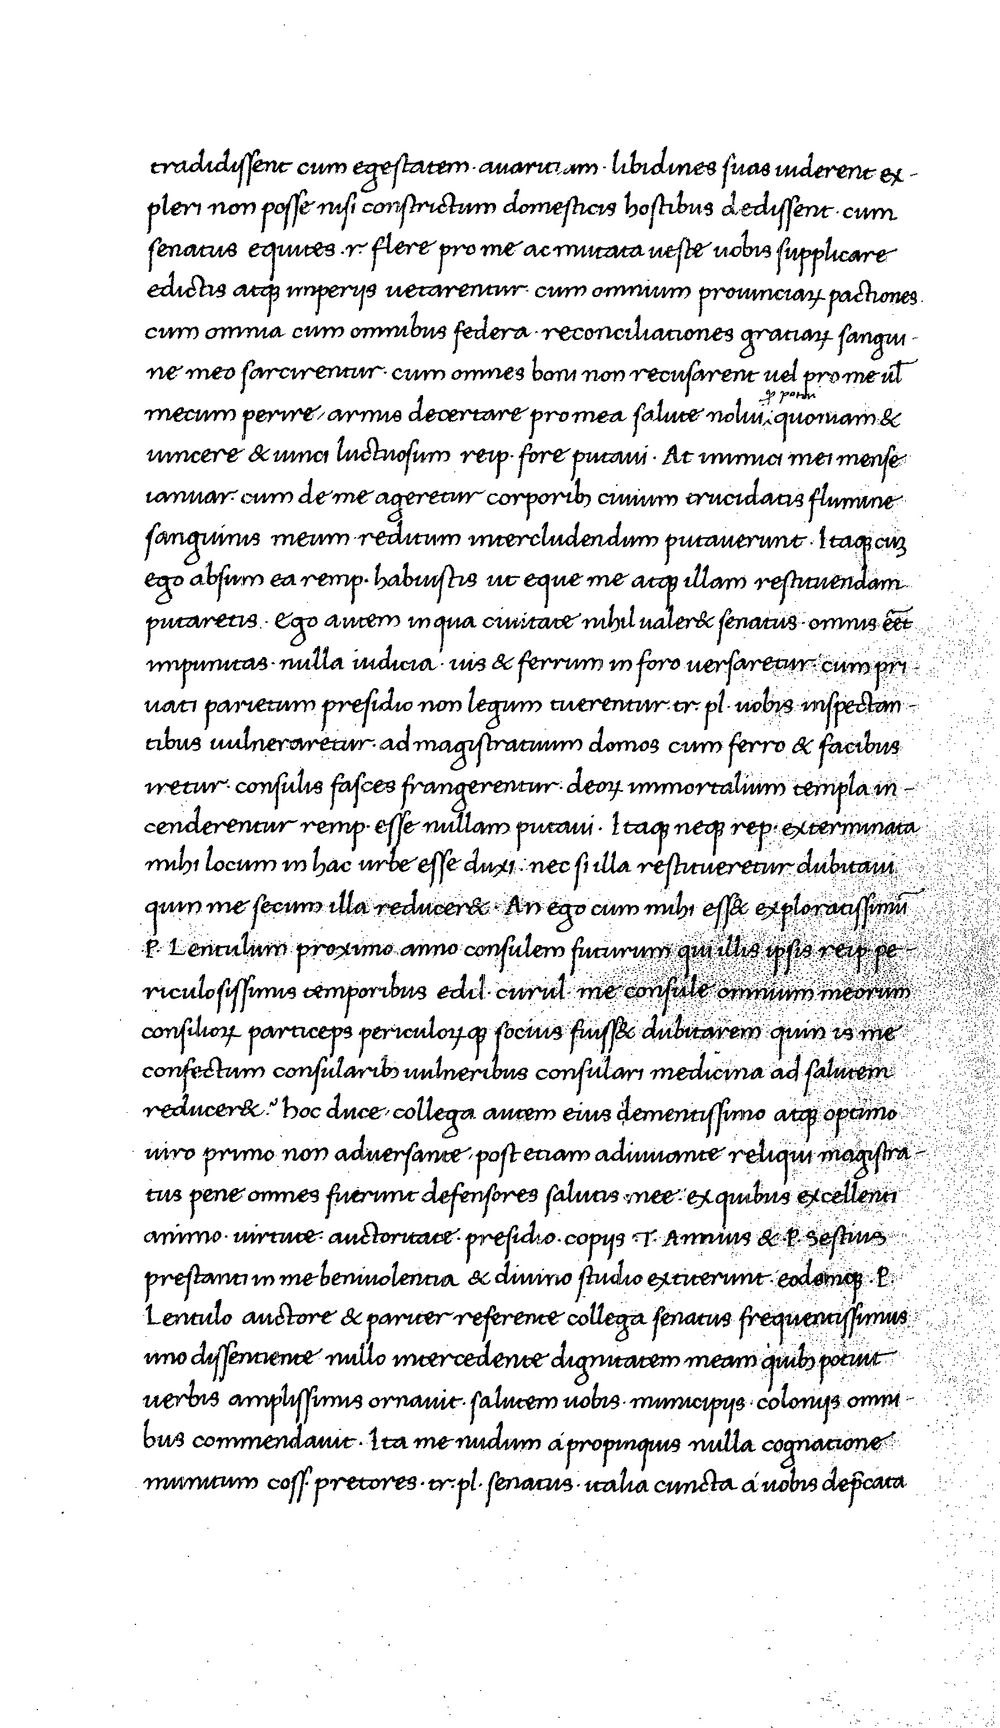 tradidissent cum egestatem · auaritiam · libidines suas uiderent ex-
pleri non posse nisi constrictum domesticis hostibus dedissent · cum
senatus equites · r · flere pro me ac mutata ueste uobis supplicare
edictis atqꝫ imperijs uetarentur · cum omnium prouinciaꝝ pactiones ·
cum omnia cum omnibus federa · reconciliationes gratiaꝝ sangui-
ne meo sarcirentur · cum omnes boni non recusarent uel pro me ul̄
mecum perire, armis decertare pro mea salute nolui, quoniam &
uincere & uinci luctuosum reip · fore putaui · At inimici mei mense
ianuar · cum de me ageretur corporibꝫ ciuium trucidatis flumine
sanguinis meum reditum intercludendum putauerunt · Itaqꝫ cuꝫ
ego absum ea remp · habuistis ut eque me atqꝫ illam restituendam
putaretis · Ego autem in qua ciuitate nihil ualer& senatus · omnis eēt
impunitas · nulla iudicia · uis & ferrum in foro uersaretur · cum pri-
uati parietum presidio non legum tuerentur · tr · pl · uobis inspectan-
tibus uulneraretur · ad magistratuum domos cum ferro & facibus
iretur · consulis fasces frangerentur · deoꝝ immortalium templa in-
cenderentur remp · esse nullam putaui · Itaqꝫ neqꝫ rep · exterminata
mihi locum in hac urbe esse duxi · nec si illa restitueretur dubitaui
quin me secum illa reducer& · An ego cum mihi ess& exploratissimū
P · Lentulum proximo anno consulem futurum qui illis ipsis reip pe-
riculosissimis temporibus edil · curul · me consule omnium meorum
consilioꝝ particeps periculoꝝqꝫ socius fuiss& dubitarem quin is me
confectum consularibꝫ uulneribus consulari medicina ad salutem
reducer& ? hoc duce, collega autem eius clementissimo atqꝫ optimo
uiro primo non aduersante, post etiam adiuuante reliqui magistra-
tus pene omnes fuerunt defensores salutis mee · ex quibus excellenti
animo · uirtute · auctoritate · presidio · copijs · T · Annius & · P · Sestius
prestanti in me beniuolentia & diuino studio extiterunt · eodemqꝫ · P ·
Lentulo auctore & pariter referente collega senatus frequentissimus
uno dissentiente nullo intercedente dignitatem meam quibꝫ potuit
uerbis amplissimis ornauit · salutem uobis · municipijs · colonijs omni-
bus commendauit · Ita me nudum á propinquis nulla cognatione
munitum coss · pretores · tr · pl · senatus · italia cuncta á uobis dep̄cata